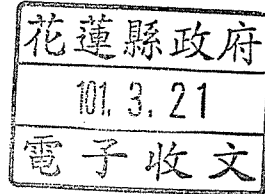 花蓮縣政府
101. 3. 21
電子收文